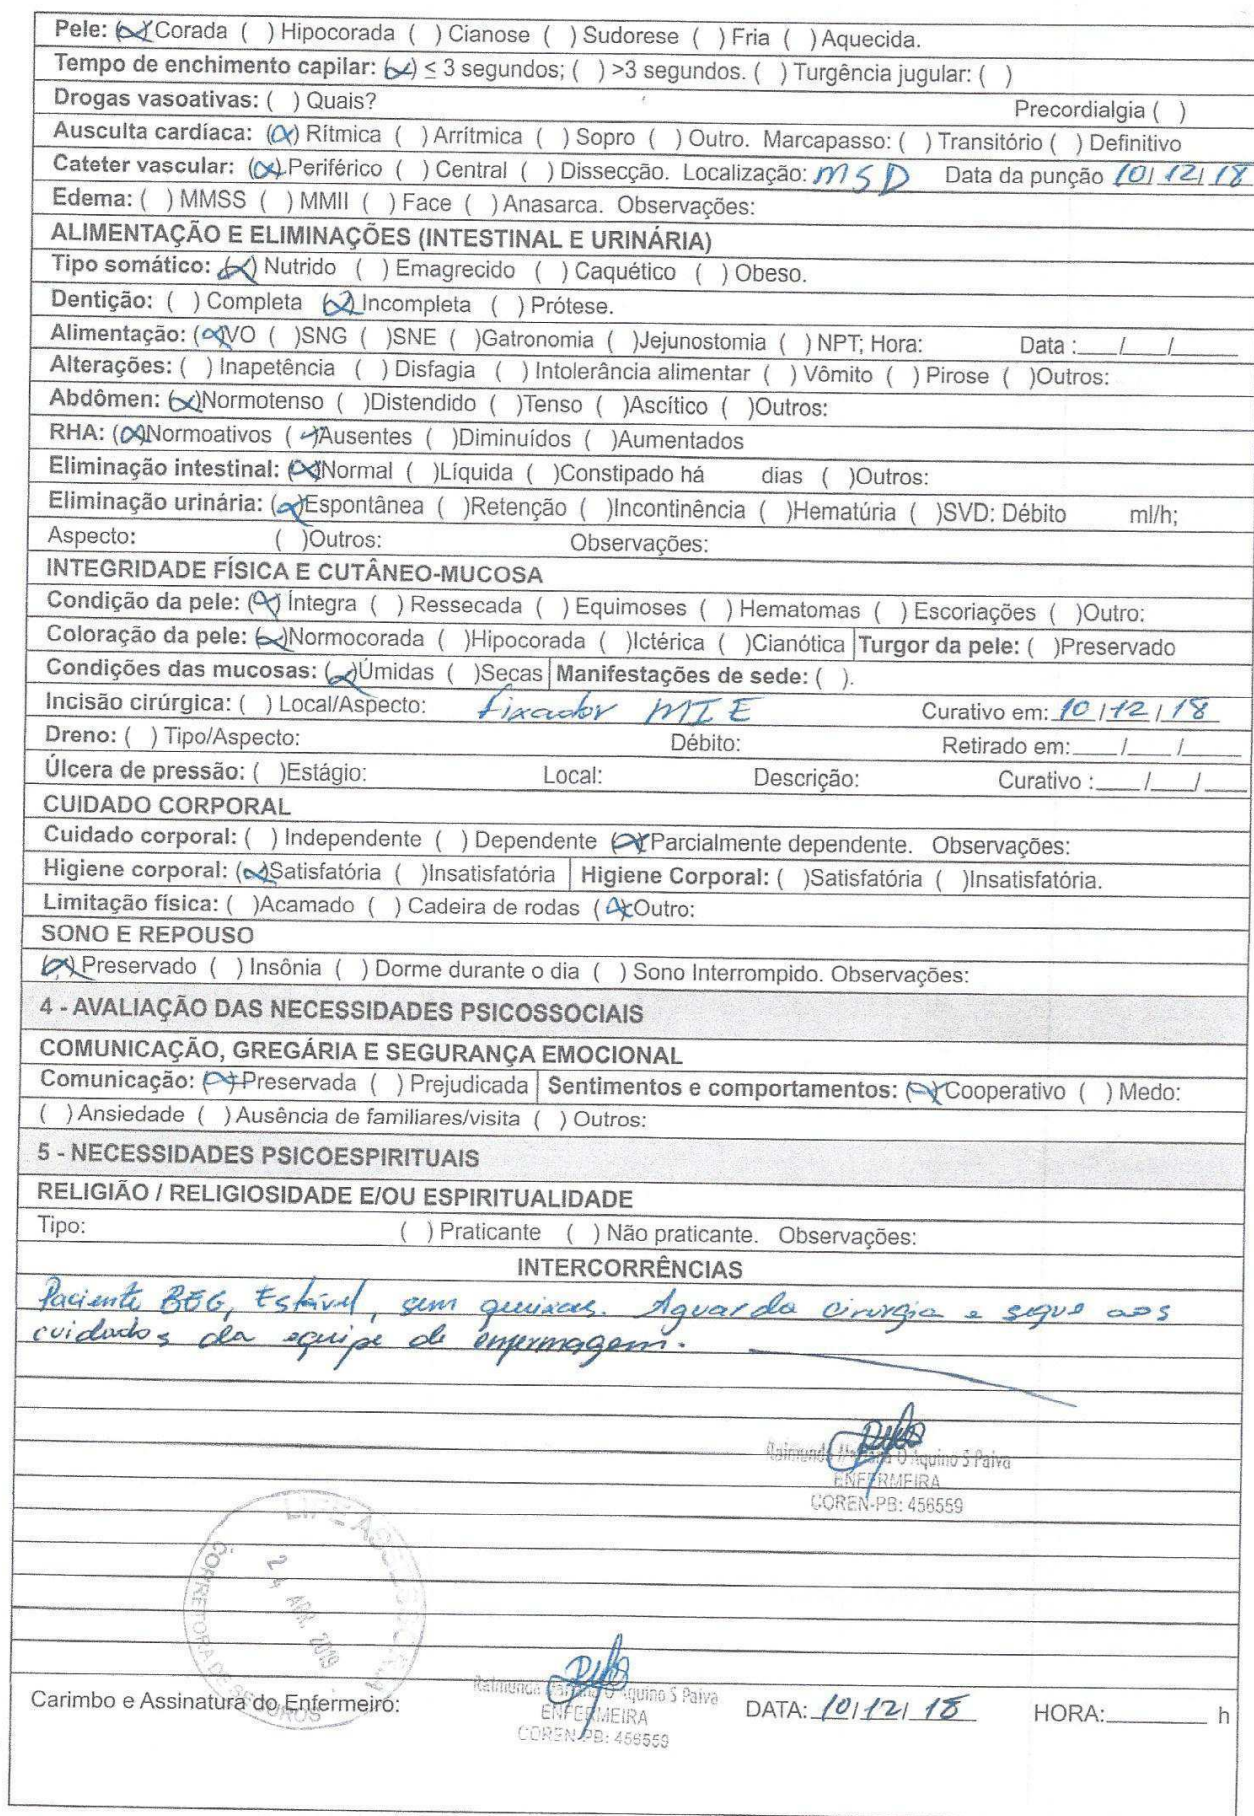 Pele: (x) Corada ( ) Hipocorada ( ) Cianose ( ) Sudorese ( ) Fria ( ) Aquecida.
Tempo de enchimento capilar: (x) ≤ 3 segundos; ( ) >3 segundos. ( ) Turgência jugular: ( )
Drogas vasoativas: ( ) Quais? Precordialgia ( )
Ausculta cardíaca: (x) Rítmica ( ) Arrítmica ( ) Sopro ( ) Outro. Marcapasso: ( ) Transitório ( ) Definitivo
Cateter vascular: (x) Periférico ( ) Central ( ) Dissecção. Localização: MSD Data da punção 10/12/18
Edema: ( ) MMSS ( ) MMII ( ) Face ( ) Anasarca. Observações:
ALIMENTAÇÃO E ELIMINAÇÕES (INTESTINAL E URINÁRIA)
Tipo somático: (x) Nutrido ( ) Emagrecido ( ) Caquético ( ) Obeso.
Dentição: ( ) Completa (x) Incompleta ( ) Prótese.
Alimentação: (x)VO ( )SNG ( )SNE ( )Gatronomia ( )Jejunostomia ( ) NPT; Hora: Data :___/___/___
Alterações: ( ) Inapetência ( ) Disfagia ( ) Intolerância alimentar ( ) Vômito ( ) Pirose ( )Outros:
Abdômen: (x)Normotenso ( )Distendido ( )Tenso ( )Ascítico ( )Outros:
RHA: (x)Normoativos ( )Ausentes ( )Diminuídos ( )Aumentados
Eliminação intestinal: (x)Normal ( )Líquida ( )Constipado há dias ( )Outros:
Eliminação urinária: (x)Espontânea ( )Retenção ( )Incontinência ( )Hematúria ( )SVD: Débito ml/h;
Aspecto: ( )Outros: Observações:
INTEGRIDADE FÍSICA E CUTÂNEO-MUCOSA
Condição da pele: (x) Íntegra ( ) Ressecada ( ) Equimoses ( ) Hematomas ( ) Escoriações ( )Outro:
Coloração da pele: (x)Normocorada ( )Hipocorada ( )Ictérica ( )Cianótica Turgor da pele: ( )Preservado
Condições das mucosas: (x)Úmidas ( )Secas Manifestações de sede: ( ).
Incisão cirúrgica: ( ) Local/Aspecto: fixador MIE Curativo em: 10/12/18
Dreno: ( ) Tipo/Aspecto: Débito: Retirado em:___/___/___
Úlcera de pressão: ( )Estágio: Local: Descrição: Curativo :___/___/___
CUIDADO CORPORAL
Cuidado corporal: ( ) Independente ( ) Dependente (x)Parcialmente dependente. Observações:
Higiene corporal: (x)Satisfatória ( )Insatisfatória Higiene Corporal: ( )Satisfatória ( )Insatisfatória.
Limitação física: ( )Acamado ( ) Cadeira de rodas (x)Outro:
SONO E REPOUSO
(x) Preservado ( ) Insônia ( ) Dorme durante o dia ( ) Sono Interrompido. Observações:
4 - AVALIAÇÃO DAS NECESSIDADES PSICOSSOCIAIS
COMUNICAÇÃO, GREGÁRIA E SEGURANÇA EMOCIONAL
Comunicação: (x)Preservada ( ) Prejudicada Sentimentos e comportamentos: (x)Cooperativo ( ) Medo:
( ) Ansiedade ( ) Ausência de familiares/visita ( ) Outros:
5 - NECESSIDADES PSICOESPIRITUAIS
RELIGIÃO / RELIGIOSIDADE E/OU ESPIRITUALIDADE
Tipo: ( ) Praticante ( ) Não praticante. Observações:
INTERCORRÊNCIAS
Paciente BEG, Estável, sem queixas. Aguarda cirurgia e segue aos
cuidados da equipe de enfermagem.
Raimunda O Aquino S Paiva
ENFERMEIRA
COREN-PB: 456559
24 ABR. 2019
CORRETORA DE SEGUROS
Raimunda O Aquino S Paiva
ENFERMEIRA
COREN-PB: 456559
Carimbo e Assinatura do Enfermeiro: DATA: 10/12/18 HORA:______ h